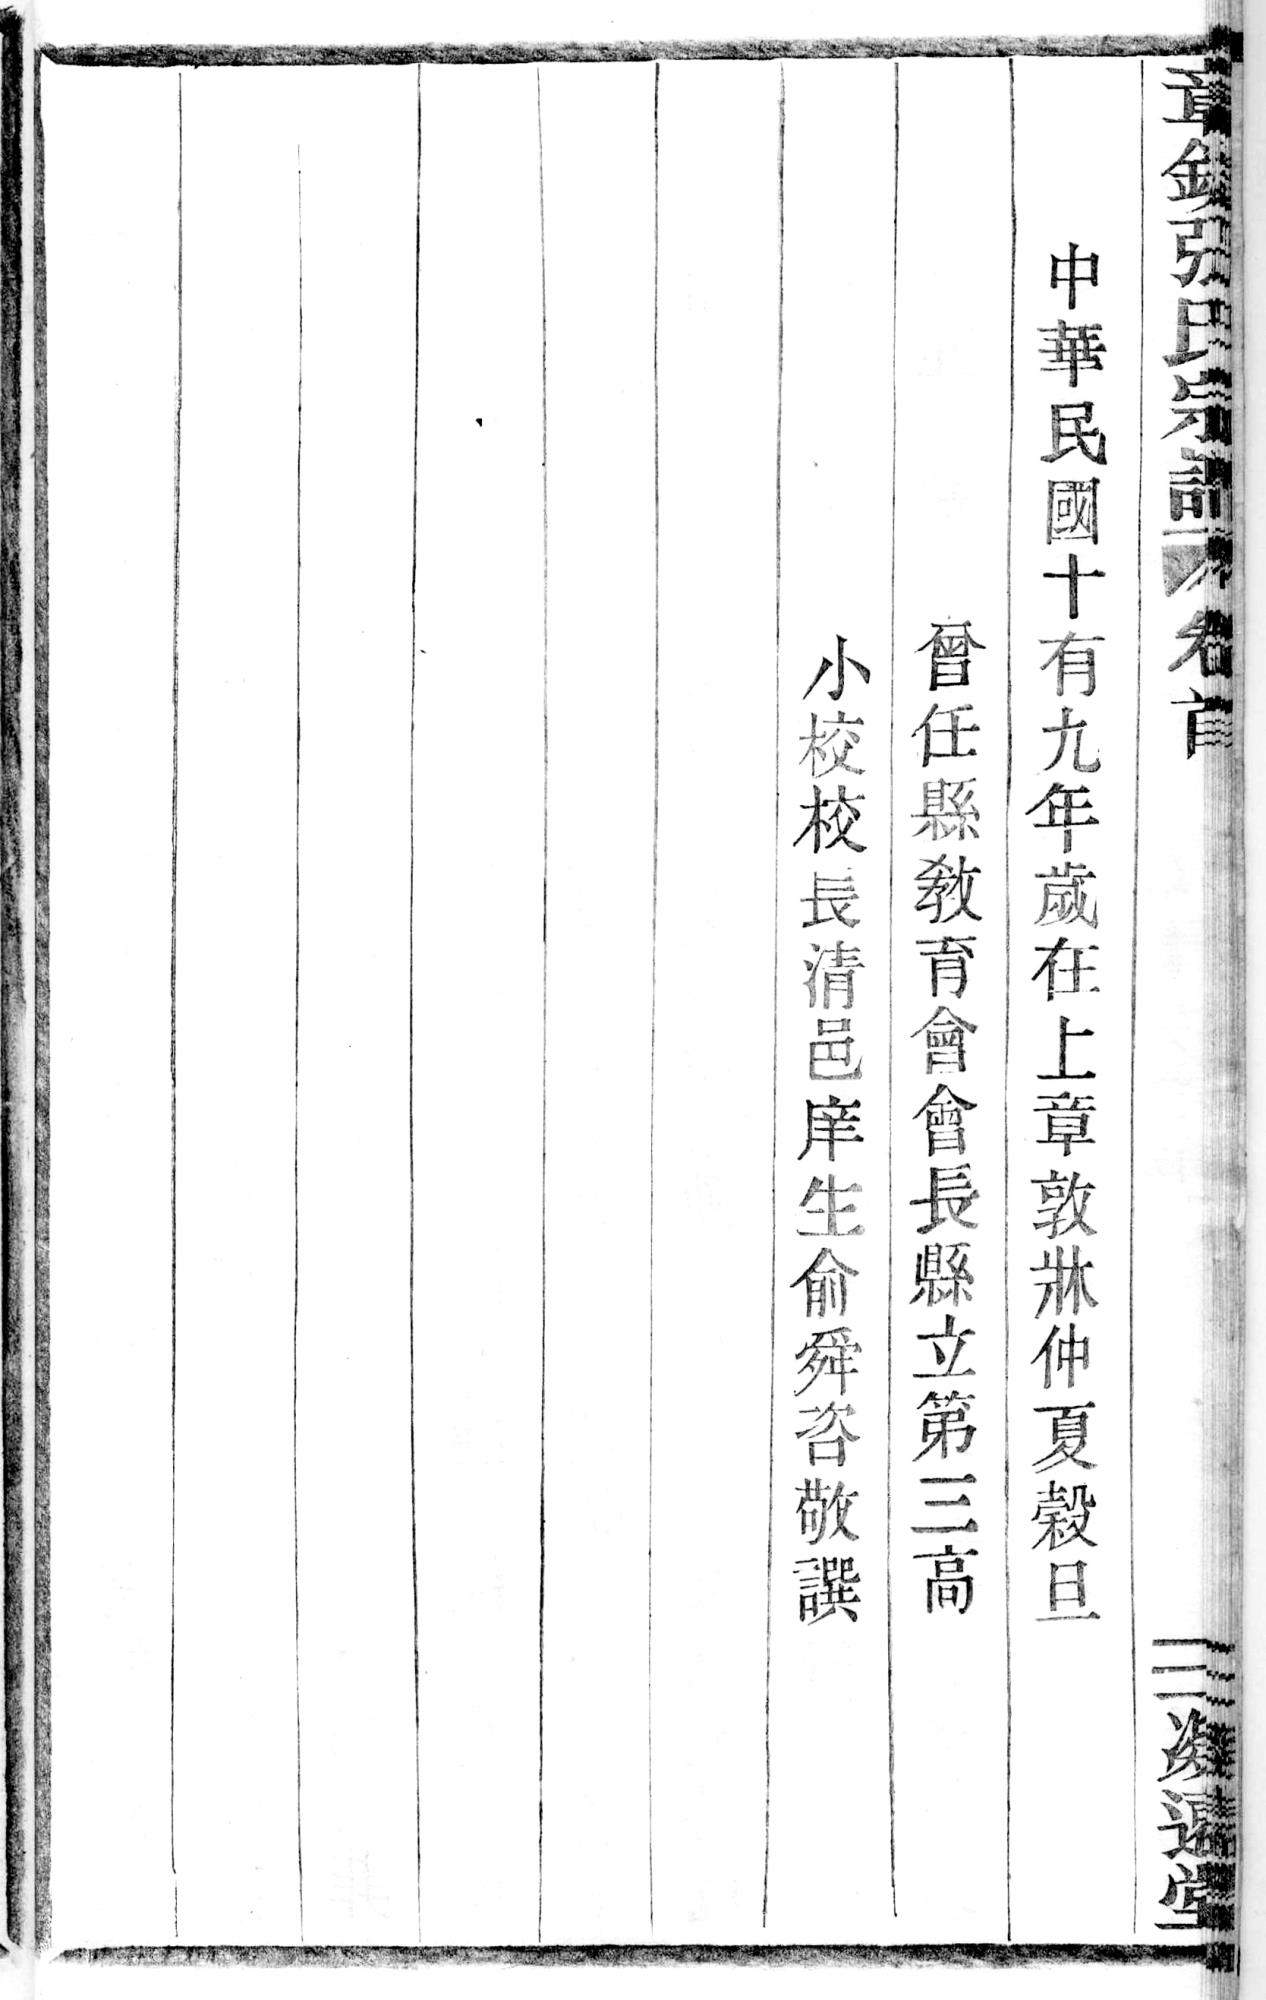 章鎮張氏宗譜 卷首 三 凝遠堂
中華民國十有九年歲在上章敦牂仲夏穀旦
曾任縣教育會會長縣立第三高
小校校長清邑庠生俞舜咨敬譔